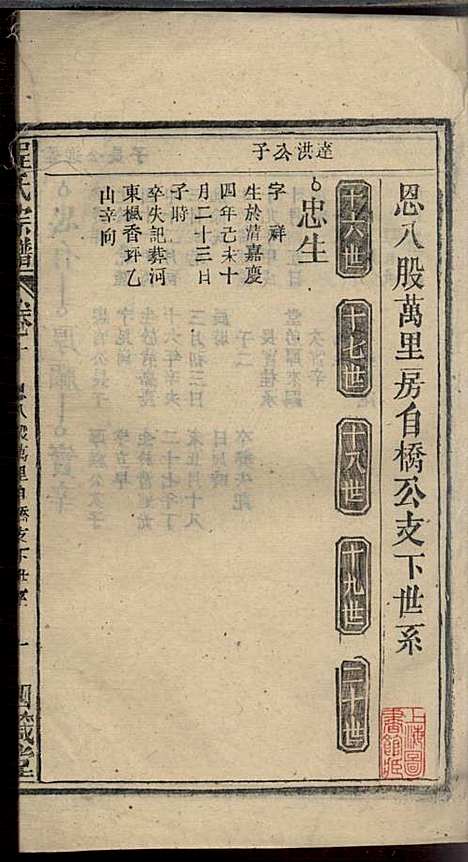 恩八股萬里房自橋公支下世系
十六世
十七世
十八世
十九世
二十世
達洪公子
忠生
字祥
生於清嘉慶
四年己未十
月二十三日
子時
卒失記葬河
東楓香坪乙
山辛向
氏宗譜
恩八股萬里自橋支下世系
上海圖
書館藏